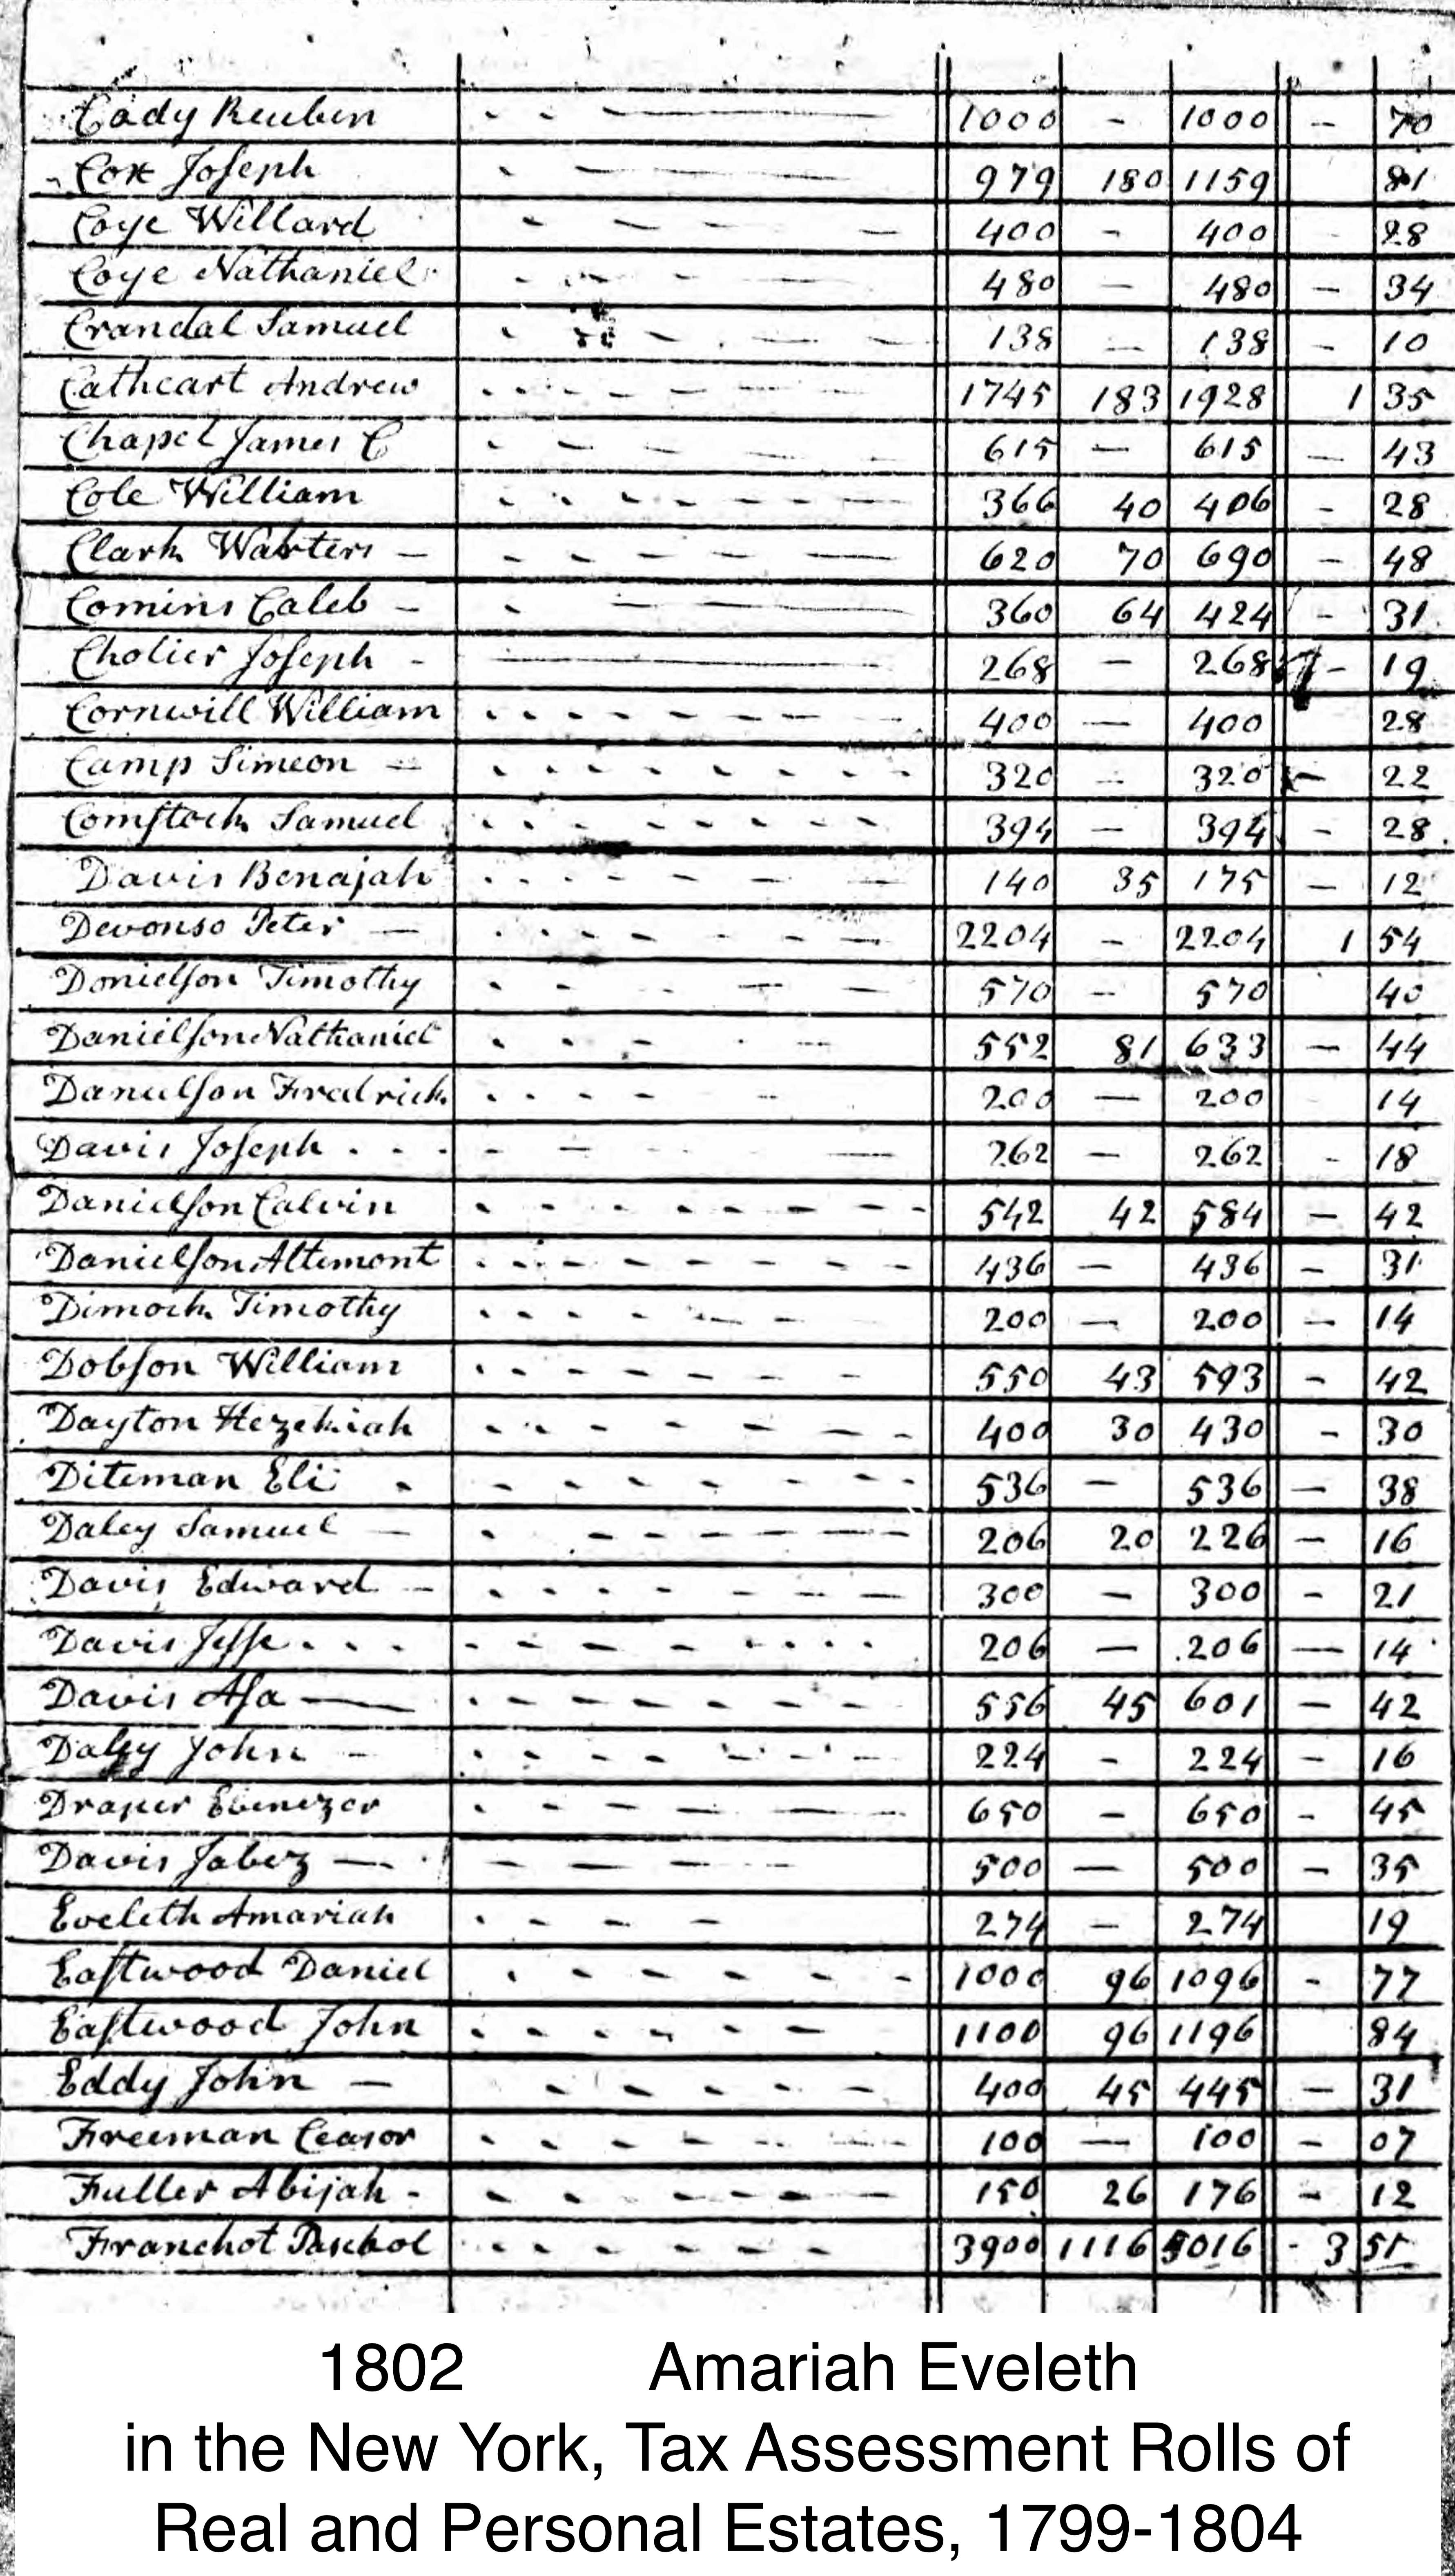 Cady Reuben - - — 1000 - 1000 - 70
Cox Joseph - — 979 180 1159 81
Coye Willard - - - - 400 - 400 28
Coye Nathaniel - - - - 480 - 480 - 34
Crandal Samuel - - - - 138 - 138 - 10
Cathcart Andrew - - - - - - 1745 183 1928 1 35
Chapel James C - - - - - 615 - 615 - 43
Cole William - - - - - - - 366 40 406 - 28
Clark Walters - - - - - - - 620 70 690 - 48
Comins Caleb - - — 360 64 424 - 31
Cholier Joseph - — 268 - 268 - 19
Cornwill William - - - - - - - 400 - 400 28
Camp Simeon - - - - - - - - 320 - 320 - 22
Comstock Samuel - - - - - - - - 394 - 394 - 28
Davis Benajah - - - - - - 140 35 175 - 12
Devonso Peter - - - - - - - - 2204 - 2204 1 54
Donielson Timothy - - - - - 570 - 570 40
Danielson Nathaniel - - - - - 552 81 633 - 44
Danielson Fredrick - - - - - 200 - 200 14
Davis Joseph . . . - - - - 262 - 262 - 18
Danielson Calvin - - - - - - - - 542 42 584 - 42
Danielson Altemont - - - - - - - - 436 - 436 - 31
Dimock Timothy - - - - - - 200 - 200 - 14
Dobson William - - - - - - 550 43 593 - 42
Dayton Hezekiah - - - - - - - 400 30 430 - 30
Diteman Eli - - - - - - - - 536 - 536 - 38
Daley Samuel - - - - - - - 206 20 226 - 16
Davis Edward - - - - - - - - 300 - 300 - 21
Davis Jesse . . . - - - - - . . . . 206 - 206 - 14
Davis Asa — - - - - - - - 556 45 601 - 42
Daley John - - - - - - - - - 224 - 224 - 16
Draper Ebenezer - - - - - - 650 - 650 - 45
Davis Jabez — - - - - 500 - 500 - 35
Eveleth Amariah - - - - 274 - 274 19
Eastwood Daniel - - - - - - 1000 96 1096 - 77
Eastwood John - - - - - - 1100 96 1196 84
Eddy John — - - - - - - 400 45 445 - 31
Freeman Ceasor - - - - - - - 100 - 100 - 07
Fuller Abijah - - - - - - - 150 26 176 - 12
Franchot Paschol - - - - - - 3900 1116 5016 - 3 51
1802 Amariah Eveleth
in the New York, Tax Assessment Rolls of
Real and Personal Estates, 1799-1804